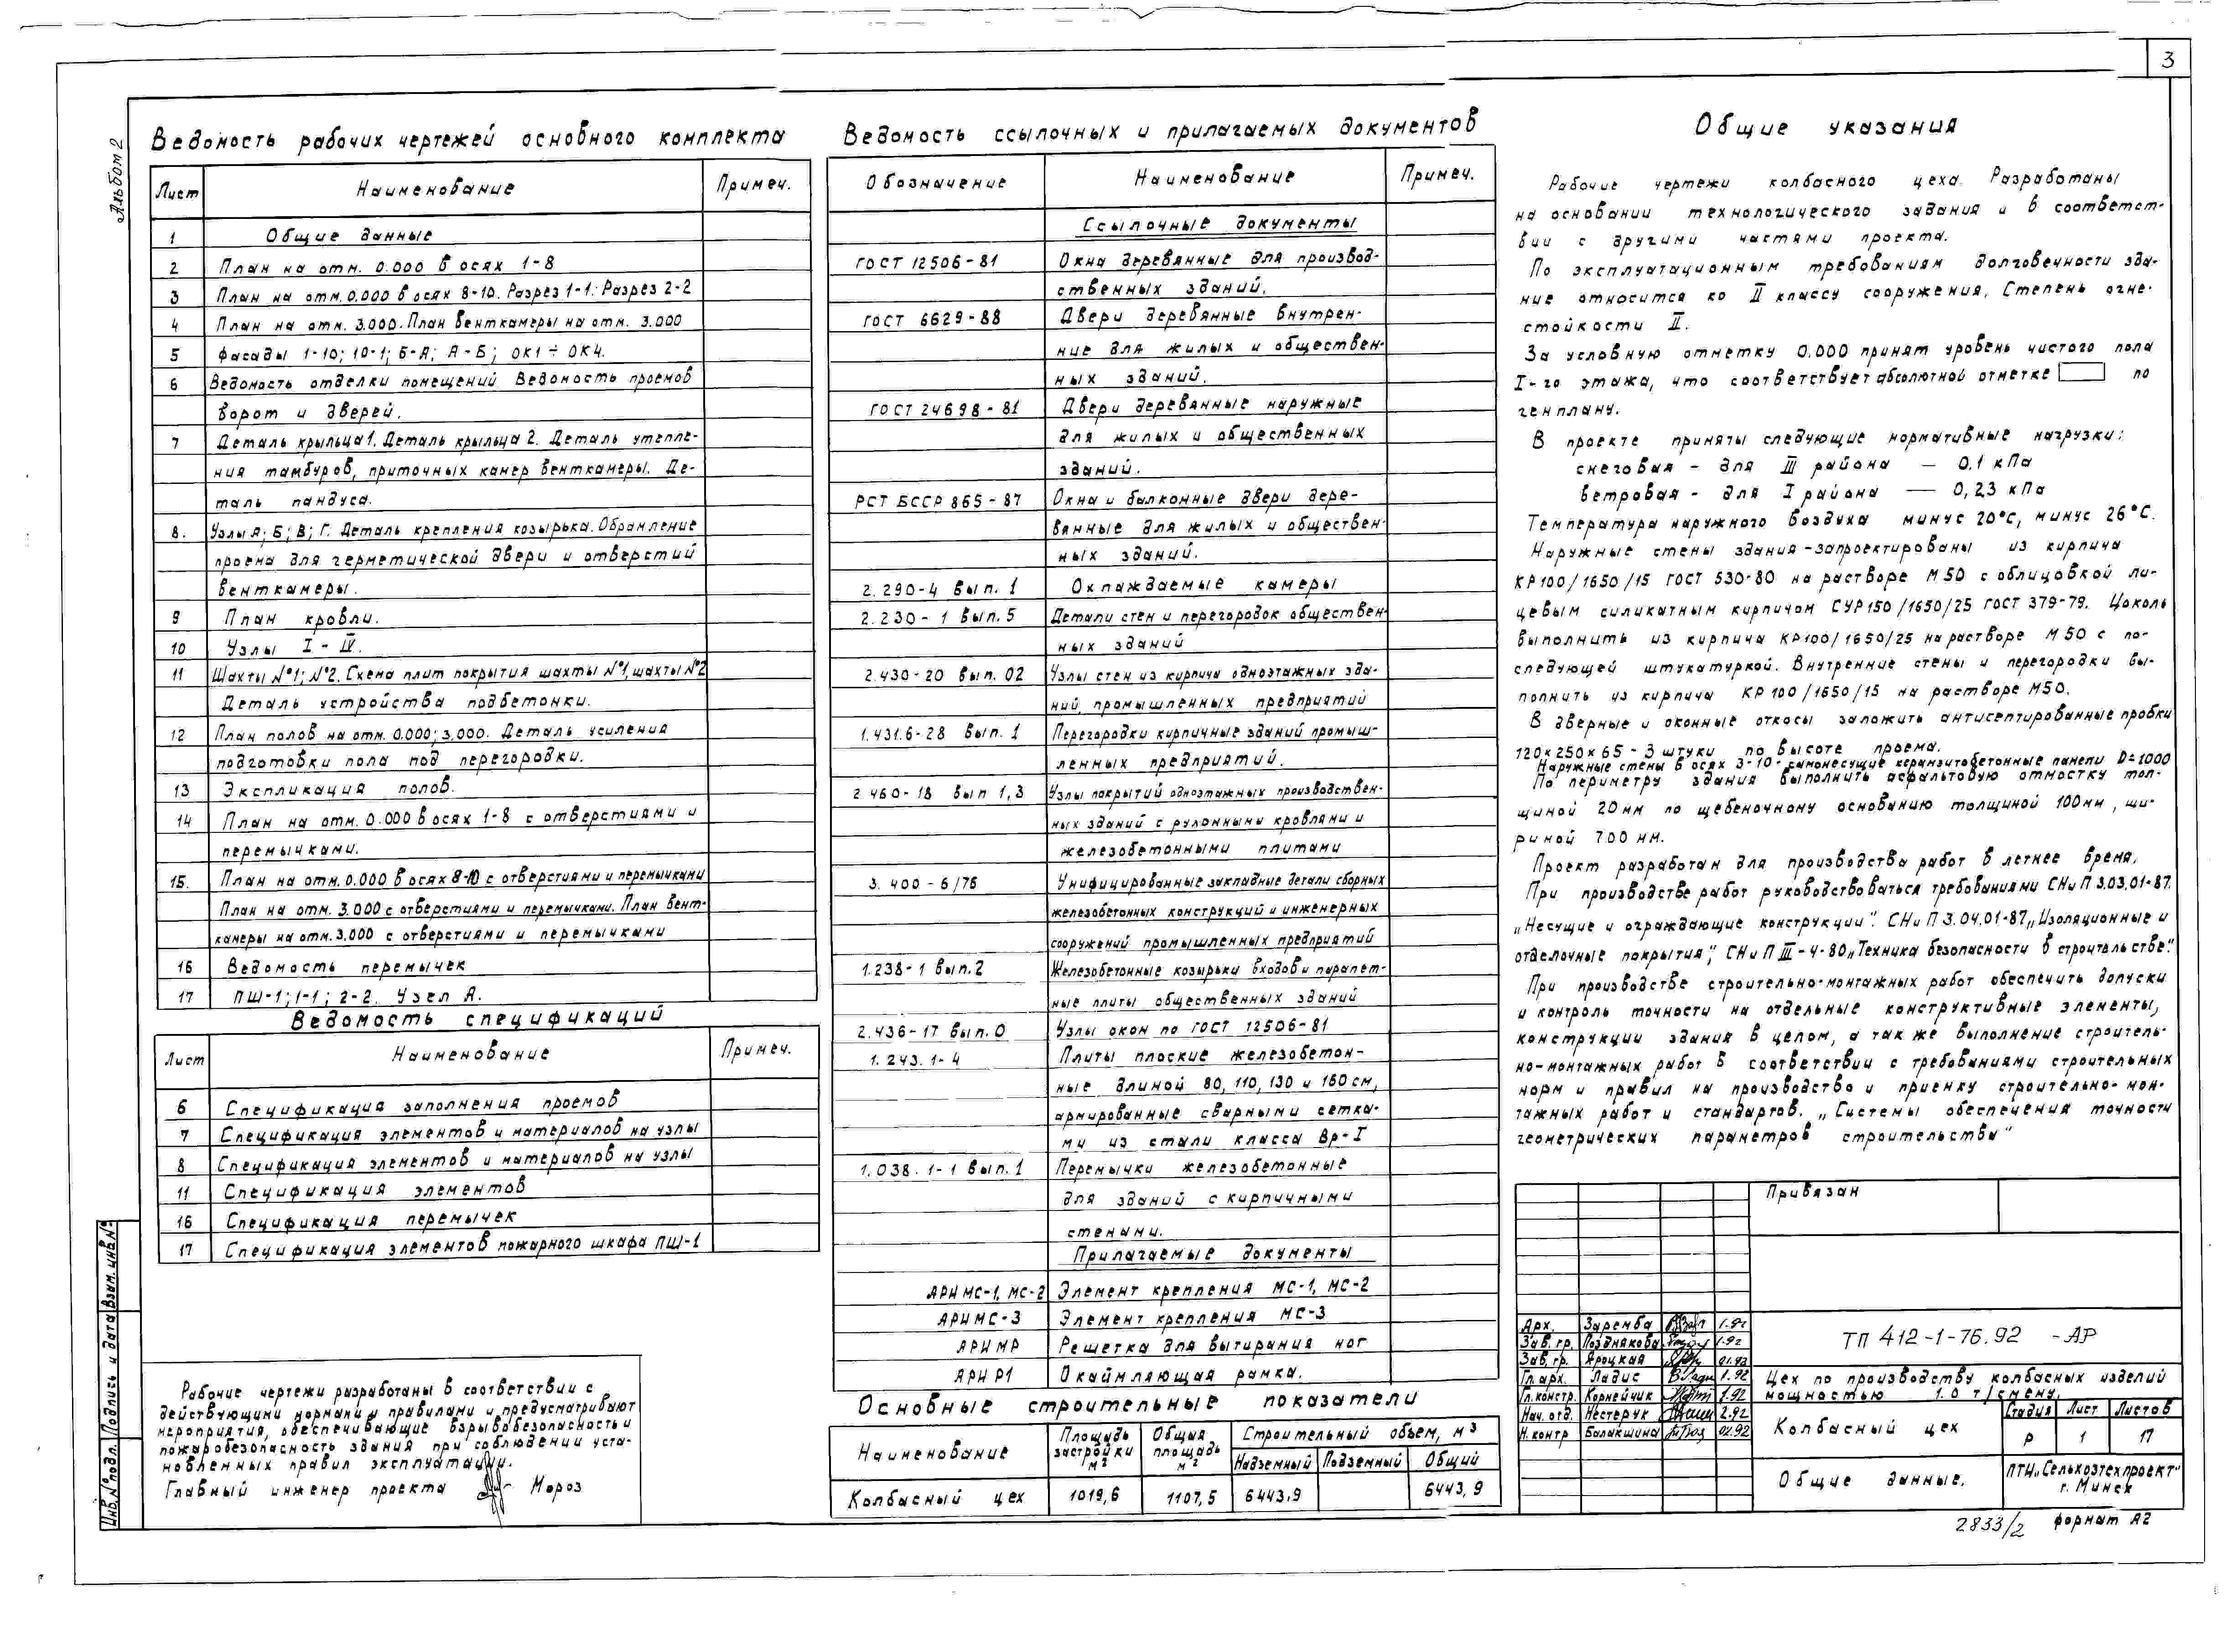 3
Альбом 2
Ведомость рабочих чертежей основного комплекта
Лист Наименование Примеч.
1 Общие данные
2 План на отм. 0.000 в осях 1-8
3 План на отм. 0.000 в осях 8-10. Разрез 1-1. Разрез 2-2
4 План на отм. 3.000. План венткамеры на отм. 3.000
5 Фасады 1-10; 10-1; Б-А; А-Б; ОК1 ÷ ОК4.
6 Ведомость отделки помещений Ведомость проемов
ворот и дверей.
7 Деталь крыльца 1. Деталь крыльца 2. Деталь утепле-
ния тамбуров, приточных камер венткамеры. Де-
таль пандуса.
8. Узлы А; Б; В; Г. Деталь крепления козырька. Обрамление
проема для герметической двери и отверстий
венткамеры.
9 План кровли.
10 Узлы I - IV.
11 Шахты №1; №2. Схема плит покрытия шахты №1, шахты №2
Деталь устройства подбетонки.
12 План полов на отм. 0.000; 3.000. Деталь усиления
подготовки пола под перегородки.
13 Экспликация полов.
14 План на отм. 0.000 в осях 1-8 с отверстиями и
перемычками.
15. План на отм. 0.000 в осях 8-10 с отверстиями и перемычками
План на отм. 3.000 с отверстиями и перемычками. План вент-
камеры на отм. 3.000 с отверстиями и перемычками
16 Ведомость перемычек
17 ПШ-1; 1-1; 2-2. Узел А.
Ведомость спецификаций
Лист Наименование Примеч.
6 Спецификация заполнения проемов
7 Спецификация элементов и материалов на узлы
8 Спецификация элементов и материалов на узлы
11 Спецификация элементов
16 Спецификация перемычек
17 Спецификация элементов пожарного шкафа ПШ-1
Рабочие чертежи разработаны в соответствии с
действующими нормами и правилами и предусматривают
мероприятия, обеспечивающие взрывобезопасность и
пожаробезопасность здания при соблюдении уста-
новленных правил эксплуатации.
Главный инженер проекта Мороз
Инв.№ подл. Подпись и дата Взам. инв.№
Ведомость ссылочных и прилагаемых документов
Обозначение Наименование Примеч.
Ссылочные документы
ГОСТ 12506-81 Окна деревянные для производ-
ственных зданий.
ГОСТ 6629-88 Двери деревянные внутрен-
ние для жилых и обществен-
ных зданий.
ГОСТ 24698-81 Двери деревянные наружные
для жилых и общественных
зданий.
РСТ БССР 865-87 Окна и балконные двери дере-
вянные для жилых и обществен-
ных зданий.
2.290-4 вып. 1 Охлаждаемые камеры
2.230-1 вып. 5 Детали стен и перегородок обществен-
ных зданий
2.430-20 вып. 02 Узлы стен из кирпича одноэтажных зда-
ний, промышленных предприятий
1.431.6-28 вып. 1 Перегородки кирпичные зданий промыш-
ленных предприятий.
2.460-18 вып 1,3 Узлы покрытий одноэтажных производствен-
ных зданий с рулонными кровлями и
железобетонными плитами
3.400-6/76 Унифицированные закладные детали сборных
железобетонных конструкций и инженерных
сооружений промышленных предприятий
1.238-1 вып.2 Железобетонные козырьки входов и парапет-
ные плиты общественных зданий
2.436-17 вып.0 Узлы окон по ГОСТ 12506-81
1.243.1-4 Плиты плоские железобетон-
ные длиной 80, 110, 130 и 160 см,
армированные сварными сетка-
ми из стали класса Вр-I
1.038.1-1 вып.1 Перемычки железобетонные
для зданий с кирпичными
стенами.
Прилагаемые документы
АРИ МС-1, МС-2 Элемент крепления МС-1, МС-2
АРИ МС-3 Элемент крепления МС-3
АРИ МР Решетка для вытирания ног
АРИ Р1 Окаймляющая рамка.
Основные строительные показатели
Наименование Площадь застройки м² Общая площадь м² Строительный объем, м³
Надземный Подземный Общий
Колбасный цех 1019,6 1107,5 6443,9 6443,9
Общие указания
Рабочие чертежи колбасного цеха. Разработаны
на основании технологического задания и в соответст-
вии с другими частями проекта.
По эксплуатационным требованиям долговечности зда-
ние относится ко II классу сооружения, Степень огне-
стойкости II.
За условную отметку 0.000 принят уровень чистого пола
I-го этажа, что соответствует абсолютной отметке по
генплану.
В проекте приняты следующие нормативные нагрузки:
снеговая - для III района — 0.1 кПа
ветровая - для I района — 0,23 кПа
Температура наружного воздуха минус 20°С, минус 26°С.
Наружные стены здания - запроектированы из кирпича
КР100/1650/15 ГОСТ 530-80 на растворе М50 с облицовкой ли-
цевым силикатным кирпичом СУР150/1650/25 ГОСТ 379-79. Цоколь
выполнить из кирпича КР100/1650/25 на растворе М50 с по-
следующей штукатуркой. Внутренние стены и перегородки вы-
полнить из кирпича КР100/1650/15 на растворе М50.
В дверные и оконные откосы заложить антисептированные пробки
120×250×65 - 3 штуки по высоте проема.
Наружные стены в осях 3-10 - самонесущие керамзитобетонные панели D=1000
По периметру здания выполнить асфальтовую отмостку тол-
щиной 20мм по щебеночному основанию толщиной 100мм, ши-
риной 700 мм.
Проект разработан для производства работ в летнее время.
При производстве работ руководствоваться требованиями СНиП 3.03.01-87.
„Несущие и ограждающие конструкции". СНиП 3.04.01-87 „Изоляционные и
отделочные покрытия", СНиП III-4-80 „Техника безопасности в строительстве".
При производстве строительно-монтажных работ обеспечить допуски
и контроль точности на отдельные конструктивные элементы,
конструкции здания в целом, а так же выполнение строитель-
но-монтажных работ в соответствии с требованиями строительных
норм и правил на производство и приемку строительно-мон-
тажных работ и стандартов. „Системы обеспечения точности
геометрических параметров строительства"
Привязан
Арх. Заремба 1.92
Зав.гр. Позднякова 1.92
Зав.гр. Яроцкая 01.92
Гл.арх. Ладис 1.92
Гл.констр. Корнейчик 1.92
Нач.отд. Нестерук 2.92
Н.контр Балакшина 02.92
ТП 412-1-76.92 -АР
Цех по производству колбасных изделий
мощностью 1.0 т/смену.
Колбасный цех
Стадия Лист Листов
Р 1 17
Общие данные.
ПТИ „Сельхозтехпроект"
г. Минск
2833/2 формат А2